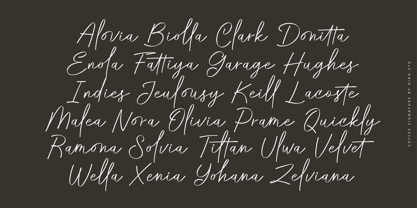 Alovia Biolla Clark Donitta
Enola Fattiya Garage Hughes
Indies Jeulousy Keill Lacoste
Malea Nora Olivia Prame Quickly
Ramona Solvia Tiltan Ulwa Velvet
Wella Xenia Yohana Zelviana